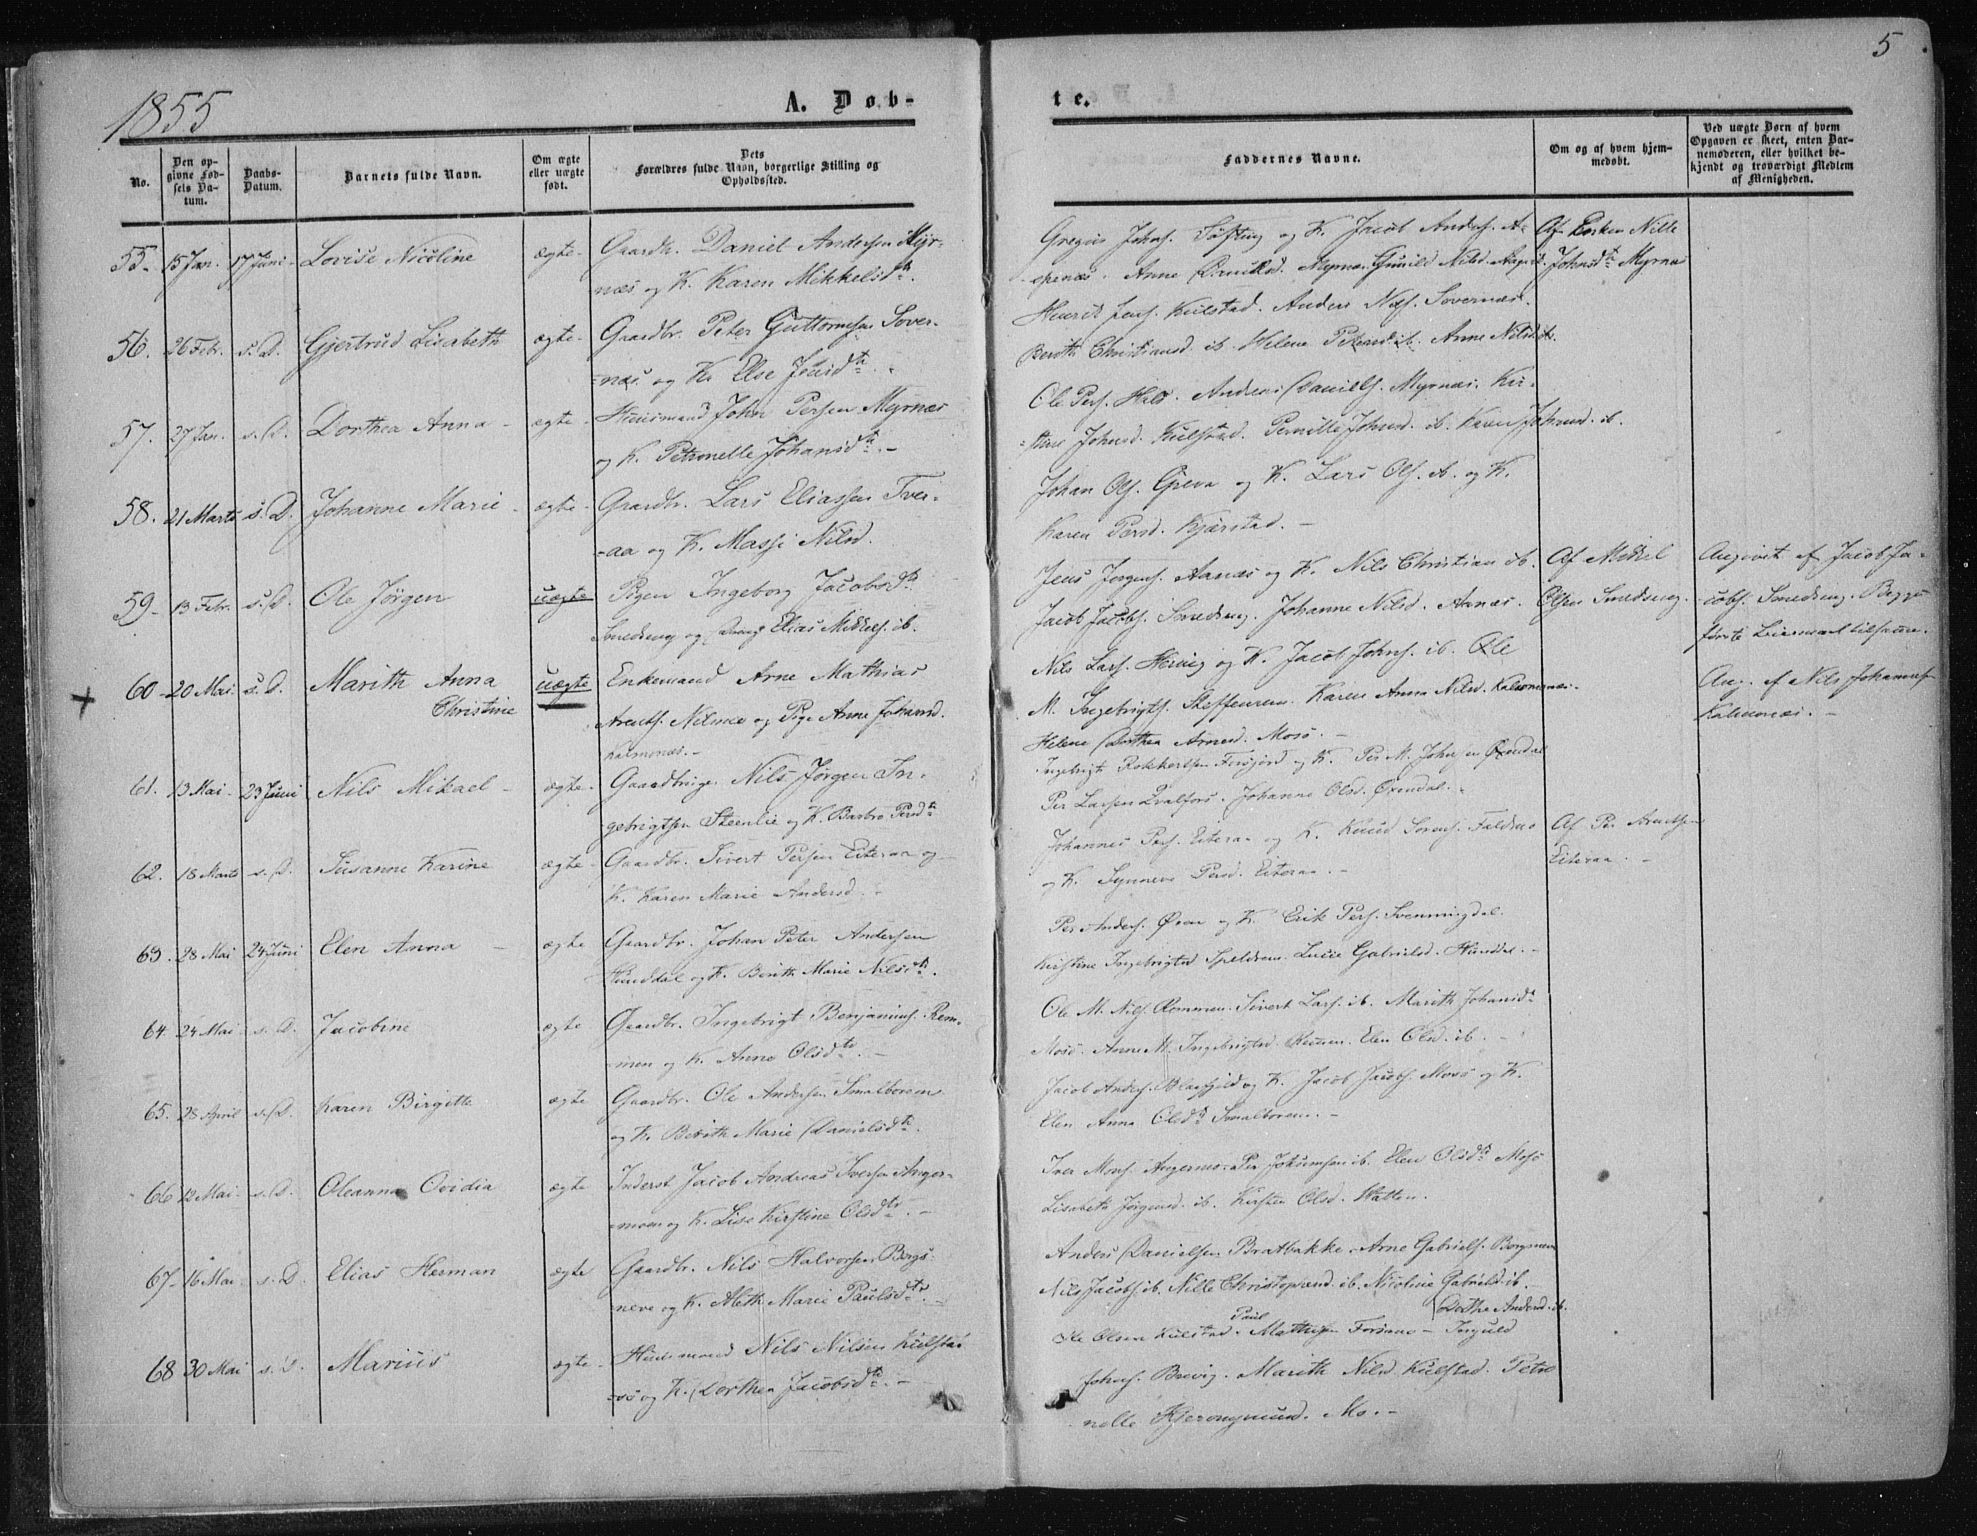 5
1855
A. Døb-
te.
No.
Den opgivne Fødsels Datum.
Daabs-Datum.
Barnets fulde Navn.
Om ægte eller uægte født.
Dets Forældres fulde Navn, borgerlige Stilling og Opholdssted.
Faddernes Navne.
Om og af hvem hjemmedøbt.
Ved uægte Børn af hvem Opgaven er skeet, enten Barnemoderen, eller hvilket bekjendt og troværdigt Medlem af Menigheden.
55. 15 Jan. 17 Juni. Lovise Nicoline ægte. Gaardb. Daniel Andersen Myr-
næs og K. Karen Mikkelsdtr.
Johns. og K. Jacob Anders.
Anne Myrnæs. Gunild Nilsd.
Af Enken Nille
Johnsdtr Myrnæs
56. 26 Febr. s. D. Gjertrud Lisabeth ægte. Gaardbr. Peter Guttormsen Sover-
næs og K. Else Jensdtr.
Henrik Jens. Kulstad. Anders Nils. Sovernæs.
Berith Christiansd. ib. Helene Petersd. ib. Anne Nilsd. ib.
57. 27 Jan. s. D. Dorthea Anna ægte. Huusmand John Persen Myrnæs
og K. Petronelle Johansdtr.
Ole Pers. Anders Daniels. Myrnæs. Kir-
stine Johnsd. Kulstad. Pernille Johnsd. ib. Karen Johnsd. ib.
58. 21 Marts s. D. Johanne Marie ægte. Gaardbr. Lars Eliassen Tver-
aa og K. Massi Nilsd.
Johan Ols. og K. Lars Ols. ib. og K.
Karen Persd. Kjærstad.
59. 13 Febr. s. D. Ole Jørgen uægte Pigen Ingeborg Jacobsdtr
Smedseng og Elias Mikkels. ib.
Jens Jørgens. Aanæs og K. Nils Christian ib.
Jacob Jacobs. Smedseng. Johanne Nilsd. Aanæs.
Af Mikkel
Olsen Smedseng.
Angivet af Jacob Ja-
cobs. Smedseng. Begges
første Leiermaal tilsamme.
60. 20 Mai. s. D. Marith Anna
Christine
uægte Enkemand Arne Mathias
Arents. og Pige Anne Johansd.
Kalmonæs.
Nils Lars. og K. Jacob Johns. ib. Ole
M. Ingebrigts. Steffenrem. Karen Anna Nilsd. Kalmonæs.
Helene Dorthea Arnesd. Mosø.
Ang. af Nils Johannes.
Kalmonæs.
61. 13 Mai. 23 Juni Nils Mikael ægte. Gaardbruger Nils Jørgen In-
gebrigtsen Steenlie og K. Barbro Persdtr
Ingebrigt Forsjord og K. Per M. Johnsen Øxendal
Per Larsen Johanne Olsd. Øxendal.
62. 18 Marts s. D. Susanne Karine ægte. Gaardbr. Sivert Persen Eiteraa og
K. Karen Marie Andersd.
Johannes Pers. Eiteraa og K. Knud Sørens. Faldmo
og K. Synneve Persd. Eiteraa.
Af Per Arentsen
Eiteraa.
63. 28 Mai 24 Juni Elen Anna ægte Gaardbr. Johan Peter Andersen
Hunddal og K. Berith Marie Nilsdtr.
Per Anders. og K. Erik Pers. Svenningdal.
Kirstine Ingebrigtsd. Speldrem. Lucie Gabrielsd. Hunddal.
64. 24 Mai s. D. Jacobine ægte Gaardbr. Ingebrigt Benjamins. Rem-
men og K. Anne Olsdtr.
Ole M. Nils. Remmen. Sivert Lars. ib. Marith Johansdtr
Mosø. Anne M. Ingebrigtsd. Elen Olsd. ib.
65. 28 April s. D. Karen Birgitte ægte Gaardbr. Ole Andersen Smalborem
og K. Berith Marie Danielsdtr.
Jacob Anders. Blaafjeld og K. Jacob Jacobs. Mosø og K.
Elen Anna Olsdtr Smalborem.
66 12 Mai s. D. Oleanna Ovidia ægte Inderst Jacob Andreas Iversen Anger-
moen og K. Lise Kirstine Olsdtr.
Iver Mons. Angermo. Per ib. Elen Olsdtr Mosø
Lisabeth Jørgensd. ib. Kirsten Olsd.
67. 16 Mai s. D. Elias Herman ægte Gaardbr. Nils Halvorsen Bergs-
neve og K. Aleth Marie Paulsdtr.
Anders Danielsen Bratbakke. Arne Gabriels. Bergsneve
Nils Jacobs. ib. Nille Christophersd. ib. Nicoline Gabrielsd. ib.
Dorthe Andersd. ib.
68 30 Mai s. D. Marius ægte. Huusmand Nils Nilsen Kulstad
og K. Dorthea Jacobsdtr.
Ole Olsen Kulstad. Paul Mathisen Forsmo. Inguld
Johns. Brevig. Marith Nilsd. Kulstad. Petro-
nelle Hjeronymusd. Mo.